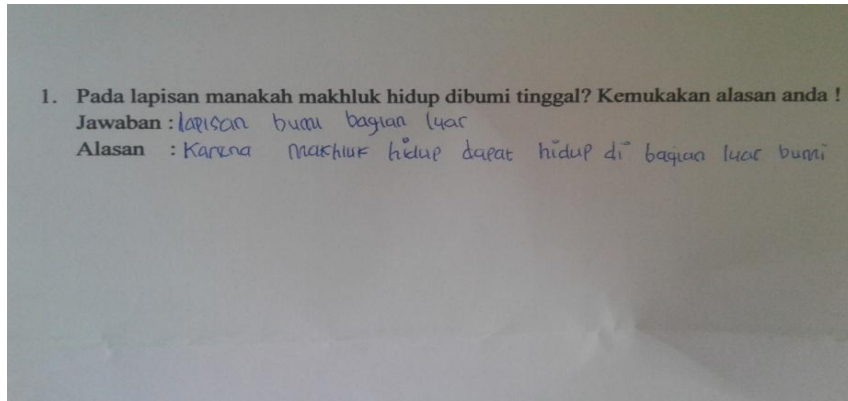 1. Pada lapisan manakah makhluk hidup dibumi tinggal? Kemukakan alasan anda !
Jawaban : lapisan bumi bagian luar
Alasan : Karena makhluk hidup dapat hidup di bagian luar bumi